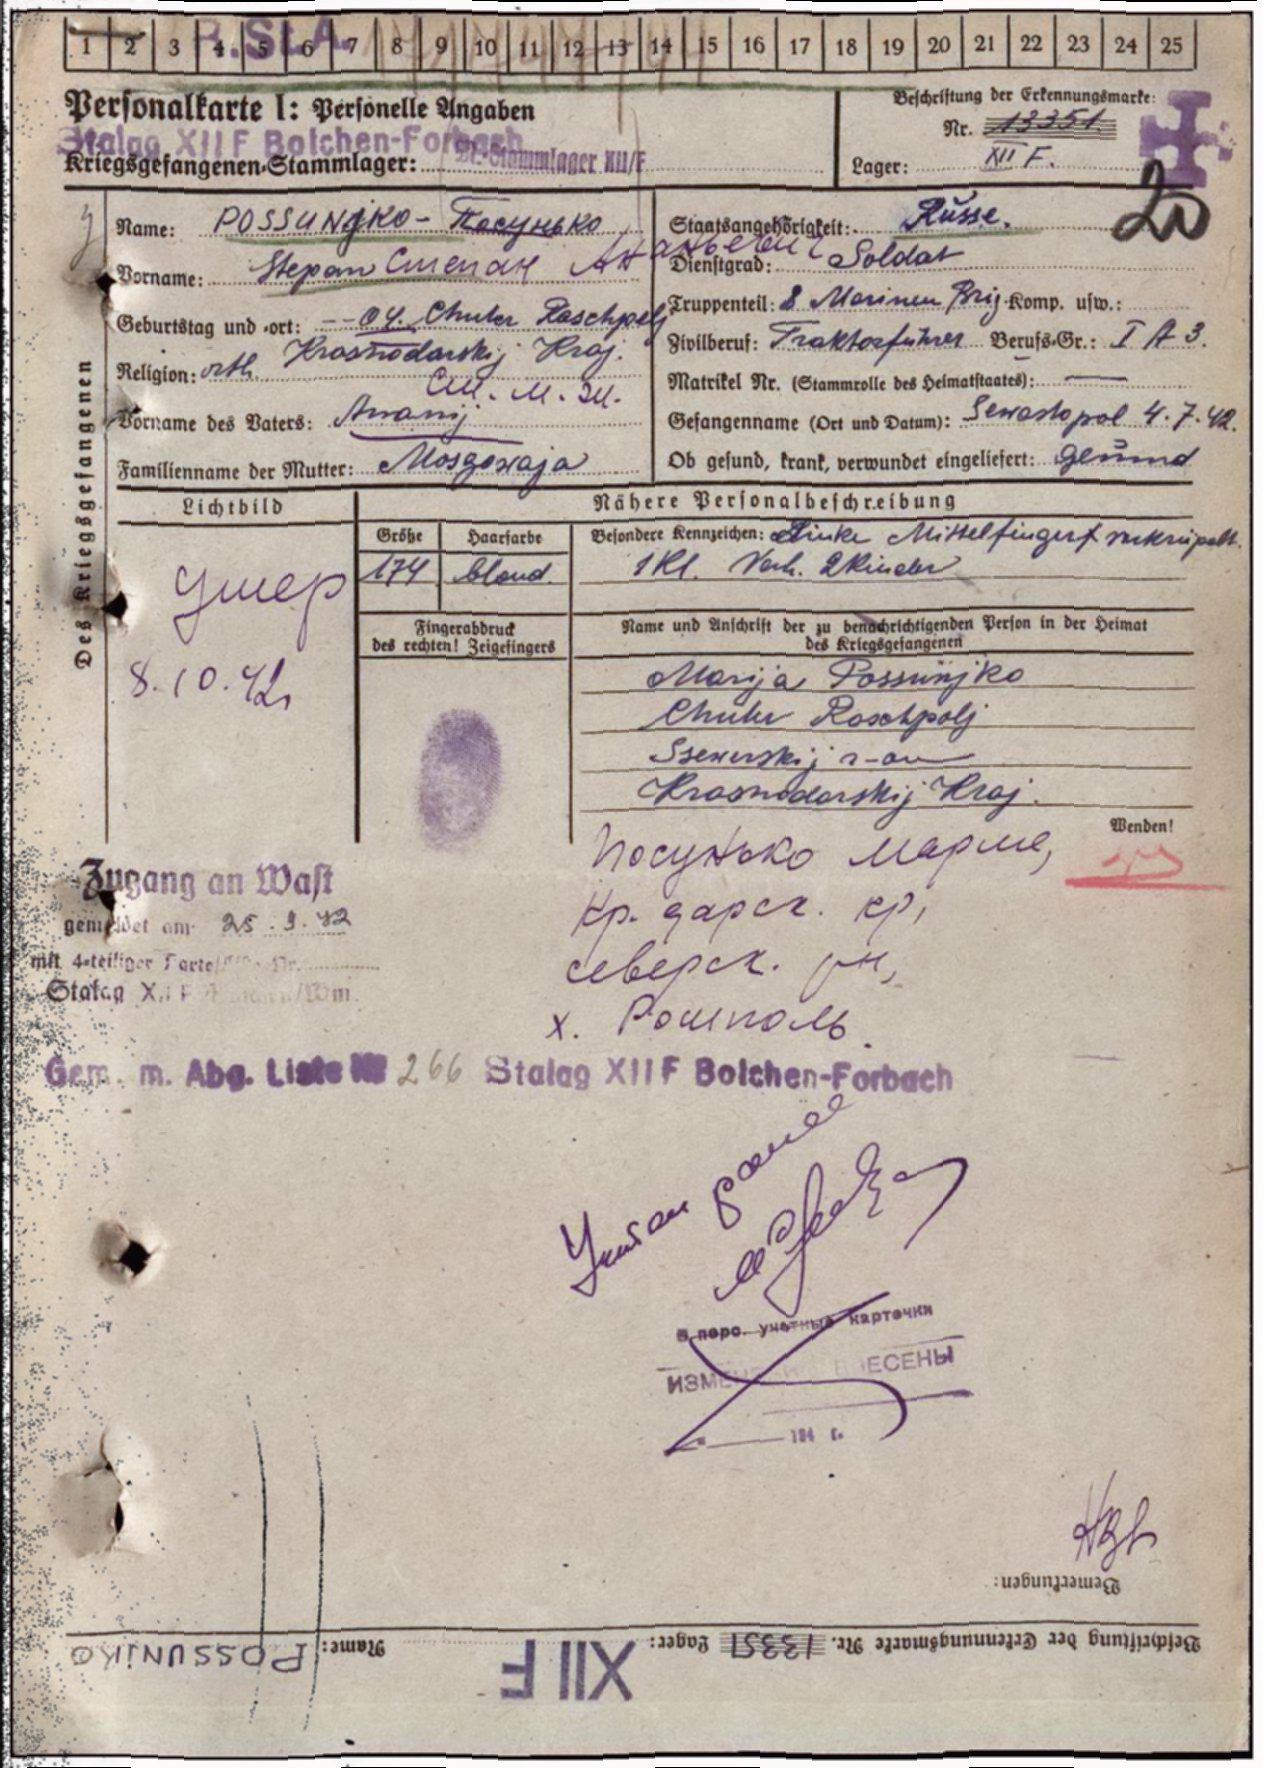 1 2 3 4 5 6 7 8 9 10 11 12 13 14 15 16 17 18 19 20 21 22 23 24 25
Personalkarte I: Personelle Angaben
Beschriftung der Erkennungsmarke:
Nr. 13351.
Stalag XII F Bolchen-Forbach
Kriegsgefangenen-Stammlager: M.-Stammlager XII/F
Lager: XII F.
20
Des Kriegsgefangenen
Name: POSSUNJKO - Посунько
Vorname: Stepan Степан Ананьевич
Geburtstag und -ort: -- 04. Chutor Raschpolj
Krasnodarskij Kraj.
Religion: orth.
Vorname des Vaters: Ananij
Familienname der Mutter: Mosgowaja
Staatsangehörigkeit: Russe.
Dienstgrad: Soldat
Truppenteil: 8 Marinen Brig. Komp. usw.:
Zivilberuf: Traktorführer Berufs-Gr.: I A 3.
Matrikel Nr. (Stammrolle des Heimatstaates): —
Gefangenname (Ort und Datum): Sewastopol 4.7.42.
Ob gesund, krank, verwundet eingeliefert: gesund
Lichtbild
Nähere Personalbeschreibung
Größe
174
Haarfarbe
blond.
Besondere Kennzeichen: Linke Mittelfinger verkrüpelt.
1 Kl. Verh. 2 Kinder
умер
8.10.42г
Fingerabdruck
des rechten! Zeigefingers
Name und Anschrift der zu benachrichtigenden Person in der Heimat
des Kriegsgefangenen
Marija Possunjko
Chutor Raschpolj
Ssewerskij r-on
Krasnodarskij Kraj.
Wenden!
Посунько Мария,
Кр. дарск. кр,
северск. рн,
х. Рошполь.
Zugang an Wast
gemeldet am 25.9.42
mit 4-teiliger
Stalag XII F
Gem. m. Abg. Liste Nr 266 Stalag XII F Bolchen-Forbach
Учтен ранее
В перс. учетные карточки
ИЗМЕНЕНИЯ ВНЕСЕНЫ
194 г.
Bemerkungen:
Beschriftung der Erkennungsmarke Nr. 13351 Lager: XII F
Name: POSSUNJKO